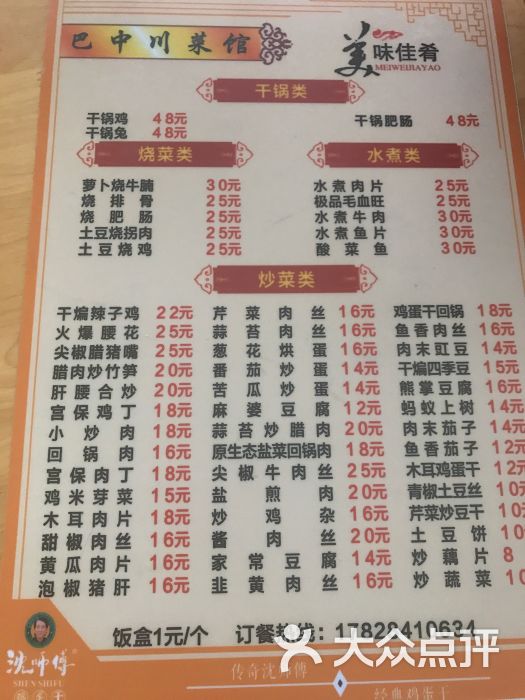 巴中川菜馆
美味佳肴
MEIWEIJIAYAO
干锅类
干锅鸡 48元 干锅肥肠 48元
干锅兔 48元
烧菜类 水煮类
萝卜烧牛腩 30元 水煮肉片 25元
烧排骨 25元 极品毛血旺 25元
烧肥肠 25元 水煮牛肉 30元
土豆烧拐肉 25元 水煮鱼片 30元
土豆烧鸡 25元 酸菜鱼 30元
炒菜类
干煸辣子鸡 22元 芹菜肉丝 16元 鸡蛋干回锅 18元
火爆腰花 25元 蒜苔肉丝 16元 鱼香肉丝 16元
尖椒腊猪嘴 25元 葱花烘蛋 16元 肉末豇豆 14元
腊肉炒竹笋 20元 番茄炒蛋 14元 干煸四季豆 15元
肝腰合炒 20元 苦瓜炒蛋 14元 熊掌豆腐 16元
宫保鸡丁 18元 麻婆豆腐 12元 蚂蚁上树 14元
小炒肉 18元 蒜苔炒腊肉 20元 肉末茄子 14元
回锅肉 16元 原生态盐菜回锅肉 18元 鱼香茄子 12元
宫保肉丁 18元 尖椒牛肉丝 25元 木耳鸡蛋干 12元
鸡米芽菜 15元 盐煎肉 20元 青椒土豆丝 10元
木耳肉片 18元 炒鸡杂 16元 芹菜炒豆干 10元
甜椒肉丝 16元 酱肉丝 20元 土豆饼 10
黄瓜肉片 16元 家常豆腐 14元 炒藕片 8
泡椒猪肝 16元 韭黄肉丝 16元 炒蔬菜 10
饭盒1元/个 订餐热线：17828410634
沈师傅
SHEN SHIFU
鸡蛋干
传奇沈师傅
经典鸡蛋干
大众点评